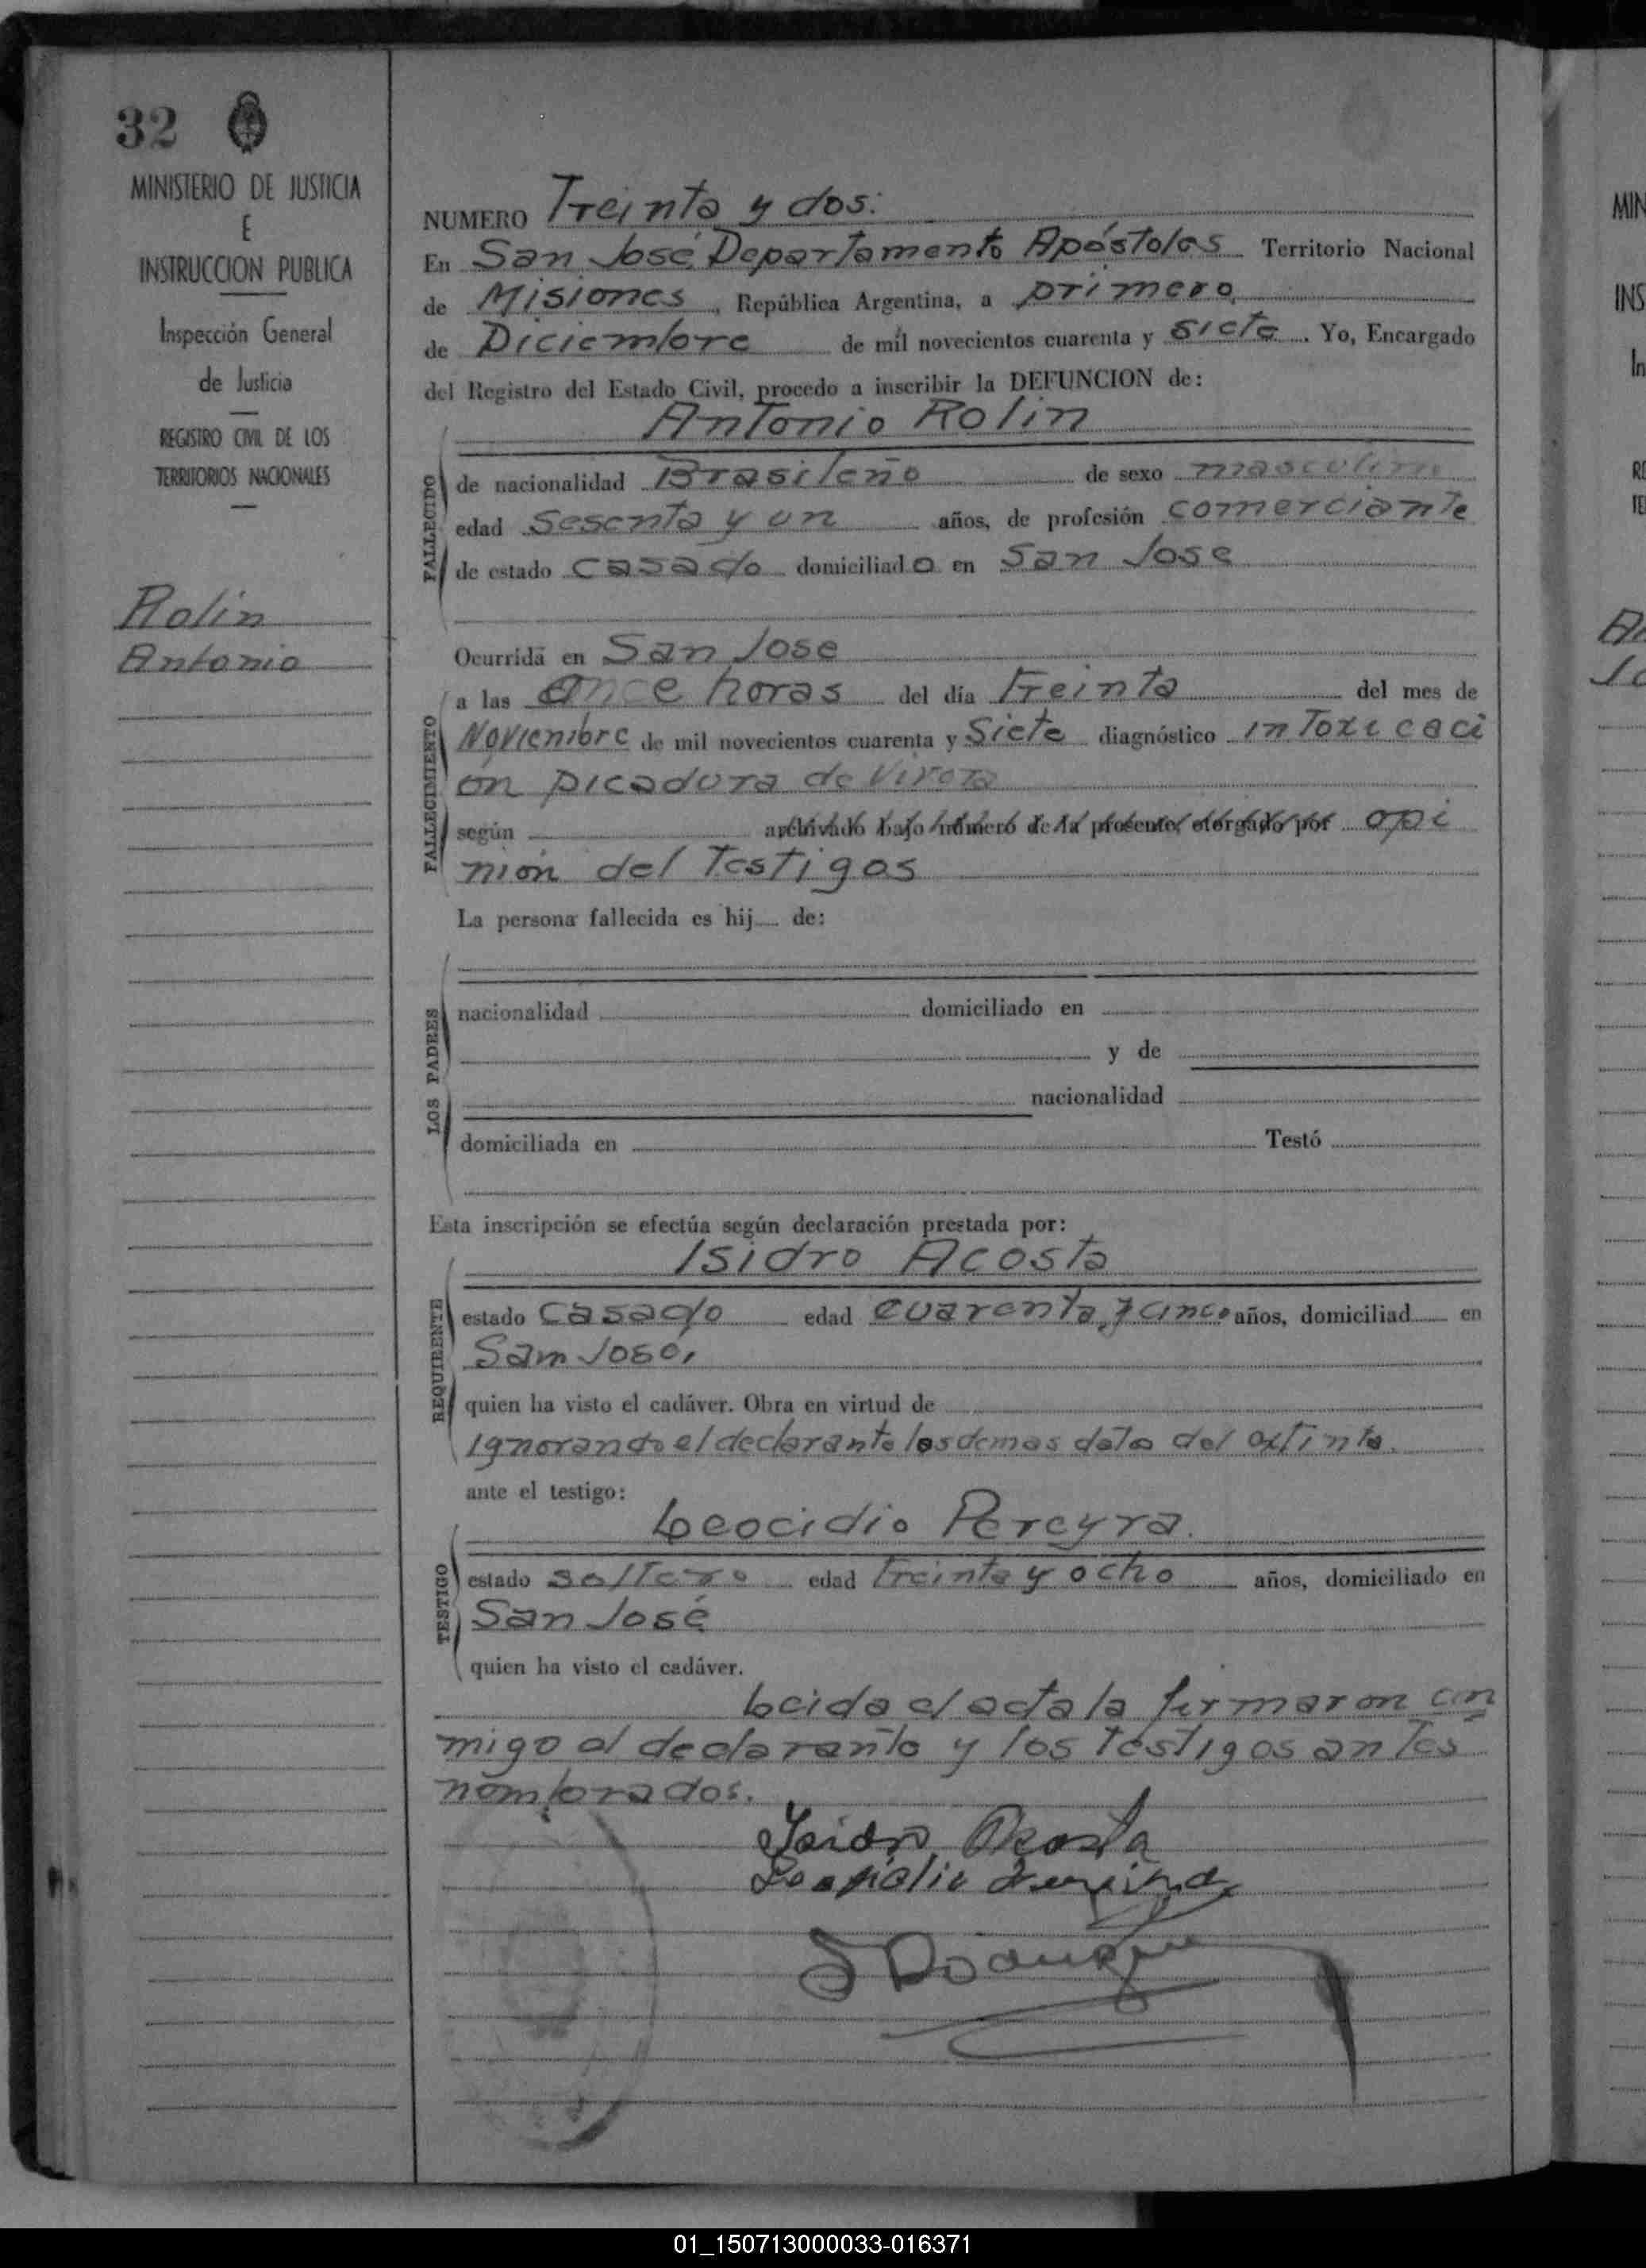 32
MINISTERIO DE JUSTICIA
E
INSTRUCCION PUBLICA
Inspección General
de Justicia
REGISTRO CIVIL DE LOS
TERRITORIOS NACIONALES
Rolin
Antonio
NUMERO Treinta y dos.
En San José Departamento Apóstoles Territorio Nacional
de Misiones, República Argentina, a primero
de Diciembre de mil novecientos cuarenta y siete. Yo, Encargado
del Registro del Estado Civil, procedo a inscribir la DEFUNCION de:
Antonio Rolin
FALLECIDO
de nacionalidad Brasileño de sexo masculino
edad Sesenta y un años, de profesión comerciante
de estado casado domiciliado en San Jose
FALLECIMIENTO
Ocurrida en San Jose
a las once horas del día treinta del mes de
Noviembre de mil novecientos cuarenta y Siete diagnóstico intoxicaci
on picadura de vivora
según archivado bajo número de la presente, otorgado por opi
nion del Testigos
La persona fallecida es hij de:
LOS PADRES
nacionalidad domiciliado en
y de
nacionalidad
domiciliada en Testó
Esta inscripción se efectúa según declaración prestada por:
Isidro Acosta
REQUIRENTE
estado casado edad cuarenta y cinco años, domiciliad en
San José,
quien ha visto el cadáver. Obra en virtud de
ignorando el declarante los demas datos del extinto.
ante el testigo:
Leocidio Pereyra.
TESTIGO
estado soltero edad treinta y ocho años, domiciliado en
San José
quien ha visto el cadáver.
Leida el acta la firmaron con
migo el declarante y los testigos antes
nombrados.
Isidro Acosta
MIN
INS
In
RE
TE
01_150713000033-016371